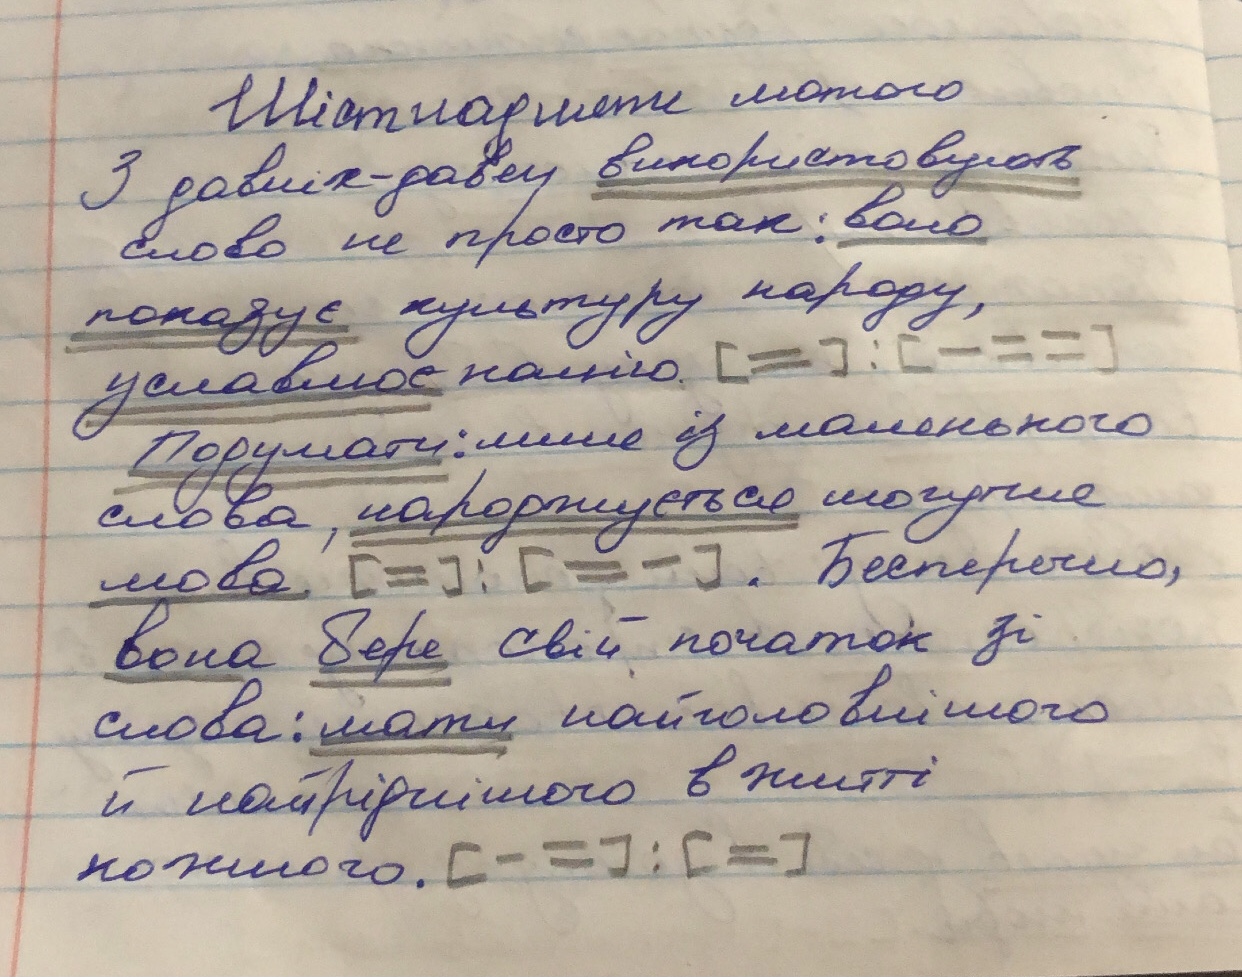 Шістнадцяте лютого
З давніх-давен використовують
слово не просто так: воно
показує культуру народу,
уславлює націю. [=]:[-==]
Подумати: лише із маленького
слова, народжується могутня
мова. [=]:[=-]. Безперечно,
вона бере свій початок зі
слова: мати найголовнішого
й найріднішого в житті
кожного. [-=]:[=]